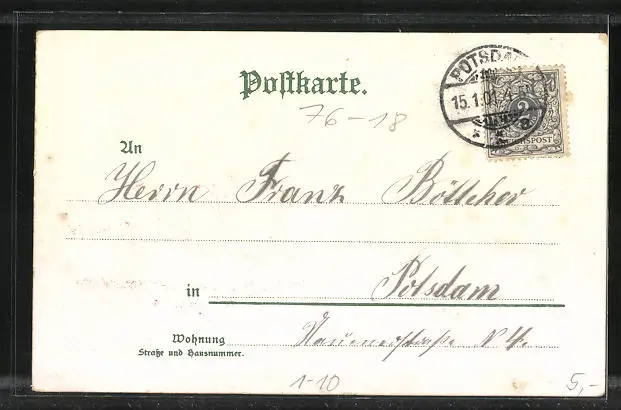 Postkarte.
POTSDA
15.1.01.4-5
2
REICHSPOST
76-18
An
Herrn Franz Böttcher
in Potsdam
Wohnung
Straße und Hausnummer.
Nauenerstraße N
1-10
5,-